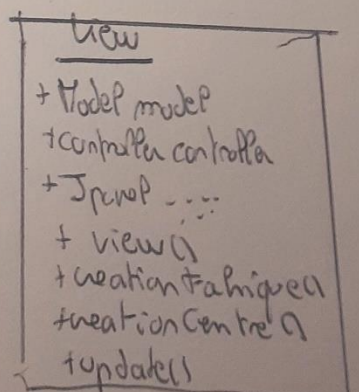 View
+ Model model
+ controller controller
+ Jpanel .....
+ view()
+ creationFabrique()
+ creationCentre()
+ update()